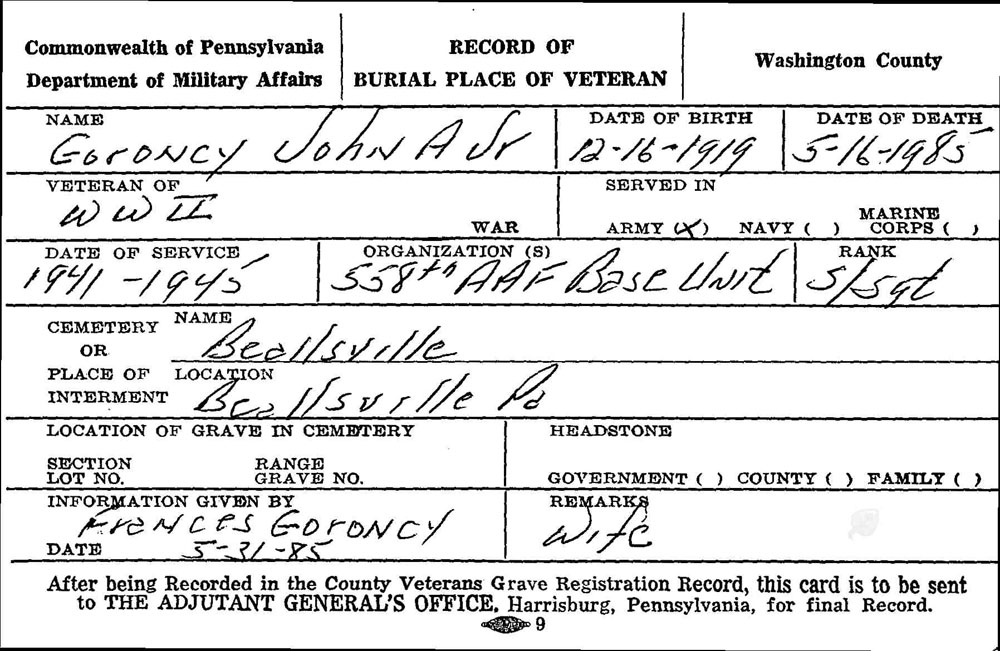 Commonwealth of Pennsylvania
Department of Military Affairs
RECORD OF
BURIAL PLACE OF VETERAN
Washington County
NAME
Goroncy John A Jr
DATE OF BIRTH
12-16-1919
DATE OF DEATH
5-16-1985
VETERAN OF
WW II
WAR
SERVED IN
ARMY (X) NAVY ( ) MARINE CORPS ( )
DATE OF SERVICE
1941-1945
ORGANIZATION (S)
558th AAF Base Unit
RANK
S/Sgt
CEMETERY
OR
PLACE OF
INTERMENT
NAME
Beallsville
LOCATION
Beallsville Pa
LOCATION OF GRAVE IN CEMETERY
SECTION RANGE
LOT NO. GRAVE NO.
HEADSTONE
GOVERNMENT ( ) COUNTY ( ) FAMILY ( )
INFORMATION GIVEN BY
Frances Goroncy
DATE 5-31-85
REMARKS
Wife
After being Recorded in the County Veterans Grave Registration Record, this card is to be sent
to THE ADJUTANT GENERAL'S OFFICE, Harrisburg, Pennsylvania, for final Record.
9